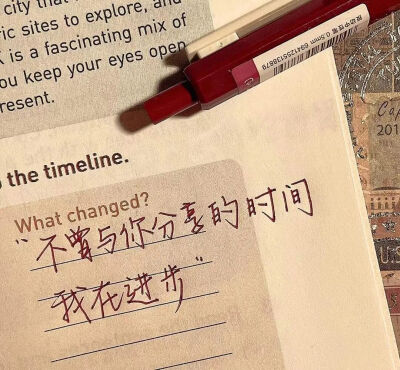 city that
ic sites to explore, and
K is a fascinating mix of
ou keep your eyes open
resent.
the timeline.
What changed?
"不曾与你分享的时间
我在进步"
0.5mm
201